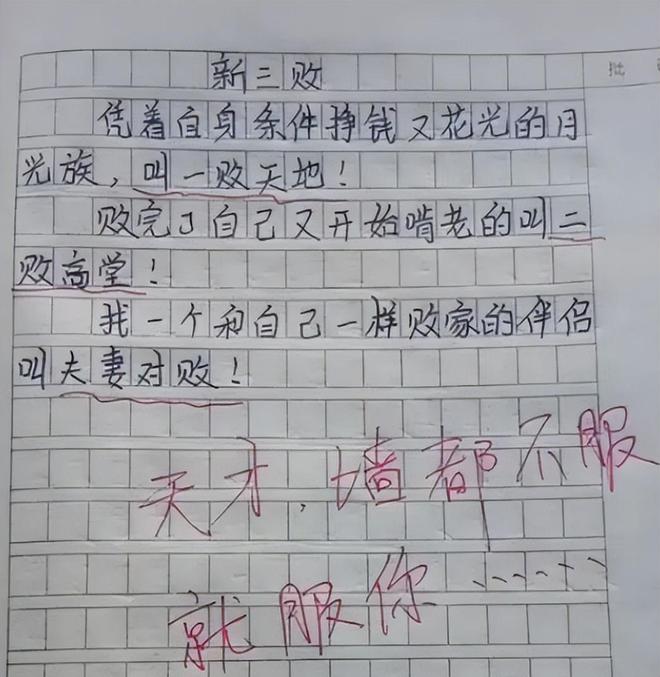 批
新三败
凭着自身条件挣钱又花光的月
光族，叫一败天地！
败完了自己又开始啃老的叫二
败高堂！
找一个和自己一样败家的伴侣
叫夫妻对败！
天才，墙都不服
就服你……